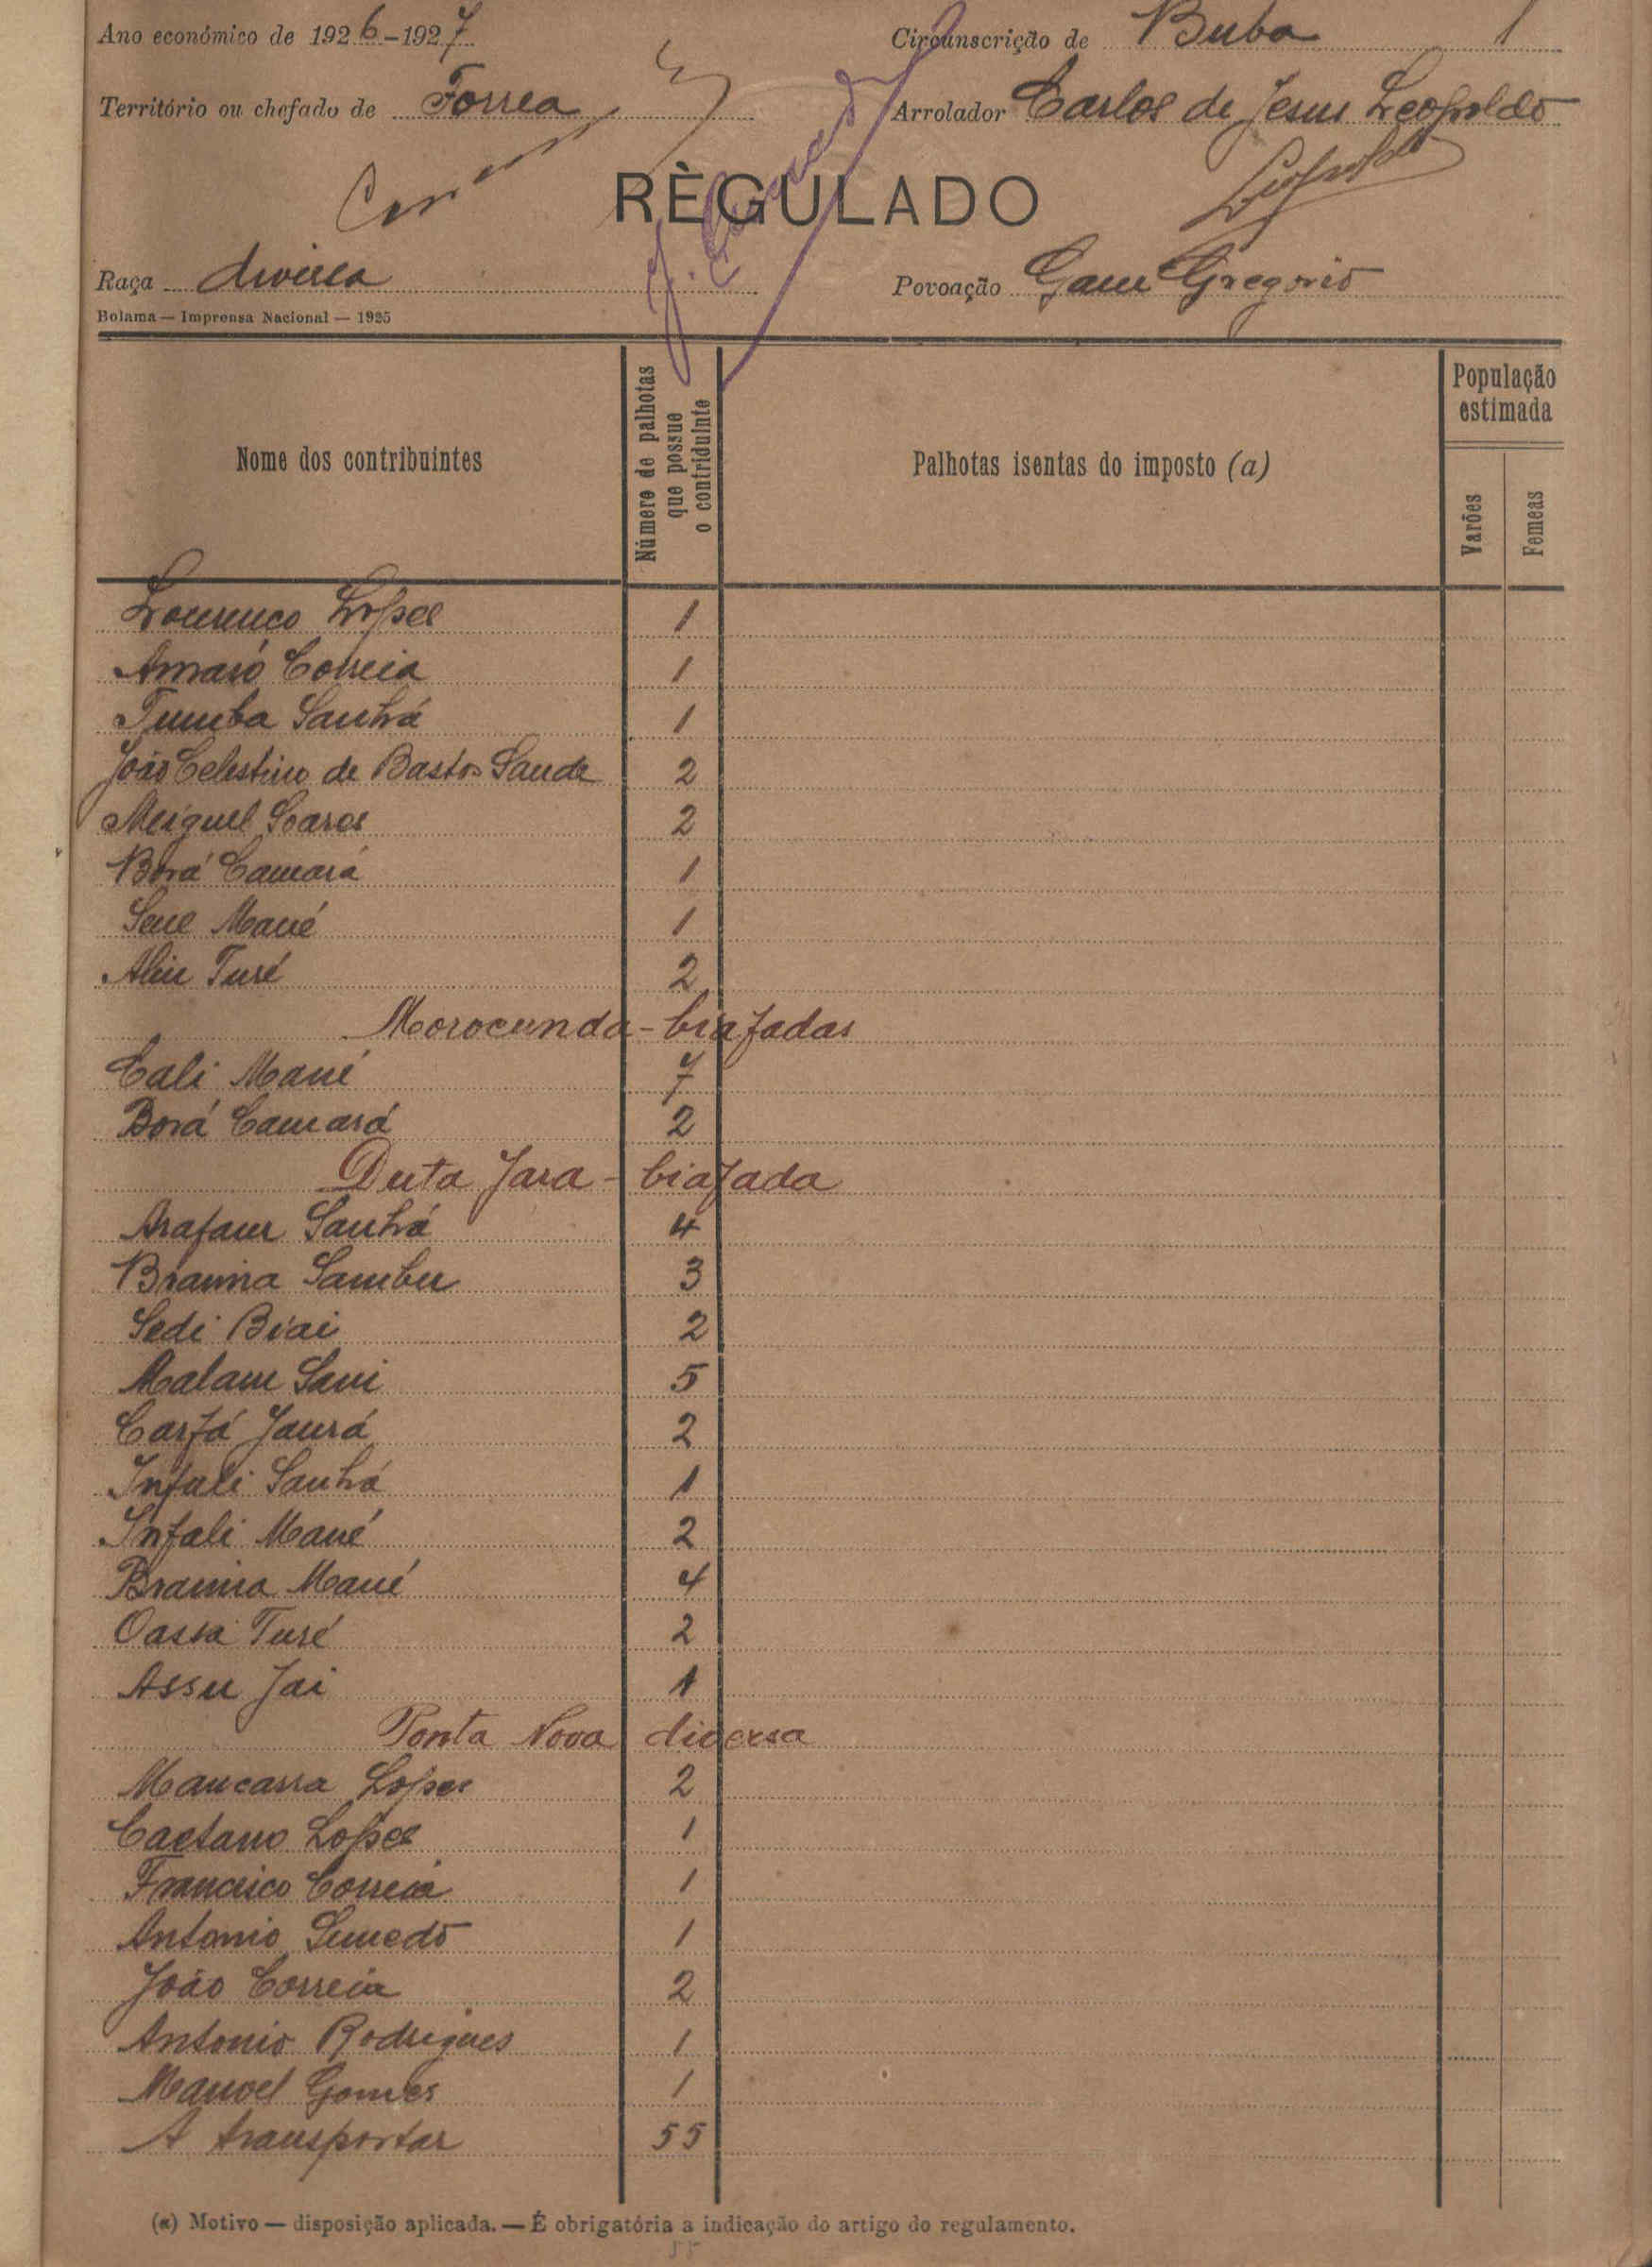 Ano económico de 1926-1927
Circunscrição de Buba 1
Território ou chefado de Forrea
Arrolador Carlos de Jesus Leopoldo
RÈGULADO
Leopoldo
Raça diversa
Povoação Gam Gregorio
Bolama — Imprensa Nacional — 1925
Nome dos contribuintes
Número de palhotas que possue o contriduinte
Palhotas isentas do imposto (a)
População estimada
Varões
Femeas
Lourenço Lopes 1
Amaro Correia 1
Tumba Sanhá 1
João Celestino de Bastos Sanda 2
Meiguel Soares 2
Borá Camará 1
Sene Mané 1
Aliu Turé 2
Morocunda - biafadas
Cali Mané 7
Borá Camará 2
Duta Jara - biafada
Arafam Sanhá 4
Braima Sambu 3
Sedi Biai 2
Malam Sani 5
Carfá Jaurá 2
Infali Sanhá 1
Infali Mané 2
Braima Mané 4
Cassa Turé 2
Assu Jai 1
Ponta Nova diversa
Mancassa Lopes 2
Caetano Lopes 1
Francisco Correia 1
Antonio Semedo 1
João Correia 2
Antonio Rodrigues 1
Manoel Gomes 1
A transportar 55
(a) Motivo — disposição aplicada. — É obrigatória a indicação do artigo do regulamento.
55